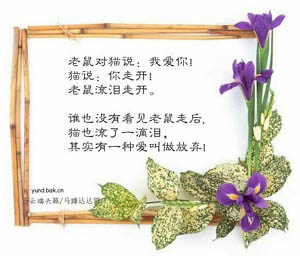 老鼠对猫说：我爱你!
猫说：你走开!
老鼠流泪走开。
谁也没有看见老鼠走后,
猫也流了一滴泪,
其实有一种爱叫做放弃!
yund.bok.cn
云端天籁/马蹄达达